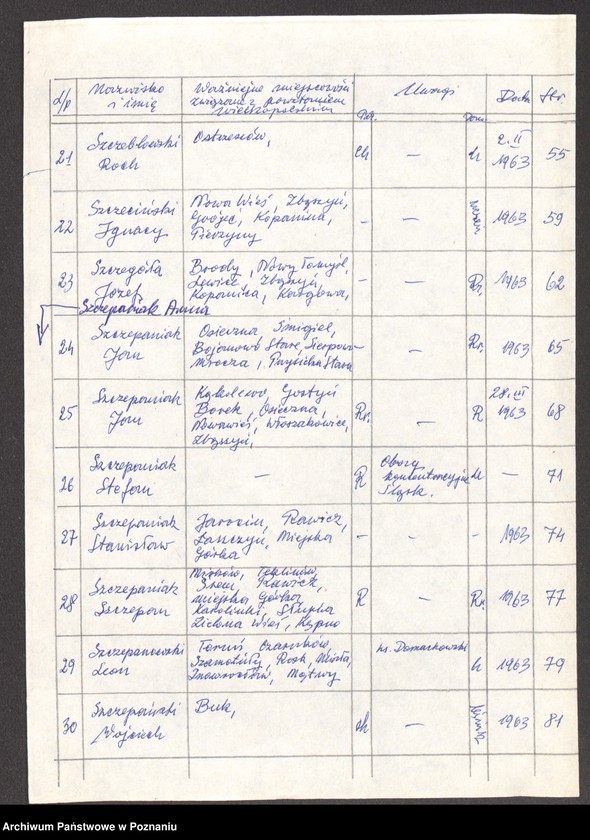 l/p Nazwisko i imię Ważniejsze miejscowości związane z powstaniem wielkopolskim Uwagi Data Str.
21 Szczebłowski Roch Ostrzeszów, Ch — ch 2.II 1963 55
22 Szczeciński Ignacy Nowa Wieś, Zbąszyń, Grójec, Kopanica, — — 1963 59
23 Szczegóła Józef Brody, Nowy Tomyśl, Lewice, Zbąszyń, Kopanica, Kargowa, — — R. 1963 62
Szczepaniak Anna
24 Szczepaniak Jan Osieczna Śmigiel, Bojanowo Stare, Sierpowo — Rr. 1963 65
25 Szczepaniak Jan Kąkolewo, Gostyń Borek, Osieczna, Nowawieś, Włoszakowice, Zbąszyń, Rr. — R 28.III 1963 68
26 Szczepaniak Stefan — R Obozy Śląsk. — 71
27 Szczepaniak Stanisław Jarocin, Rawicz, Miejska Górka — — — 1963 74
28 Szczepaniak Szczepan Śrem Rawicz, Miejska Górka Zielona Wieś, R — Rr. 1963 77
29 Szczepanowski Leon Toruń, Czarnków, Szamotuły, Inowrocław, Mątwy ks. Domachowski h 1963 79
30 Szczepański Wojciech Buk, ch — 1963 81
Archiwum Państwowe w Poznaniu